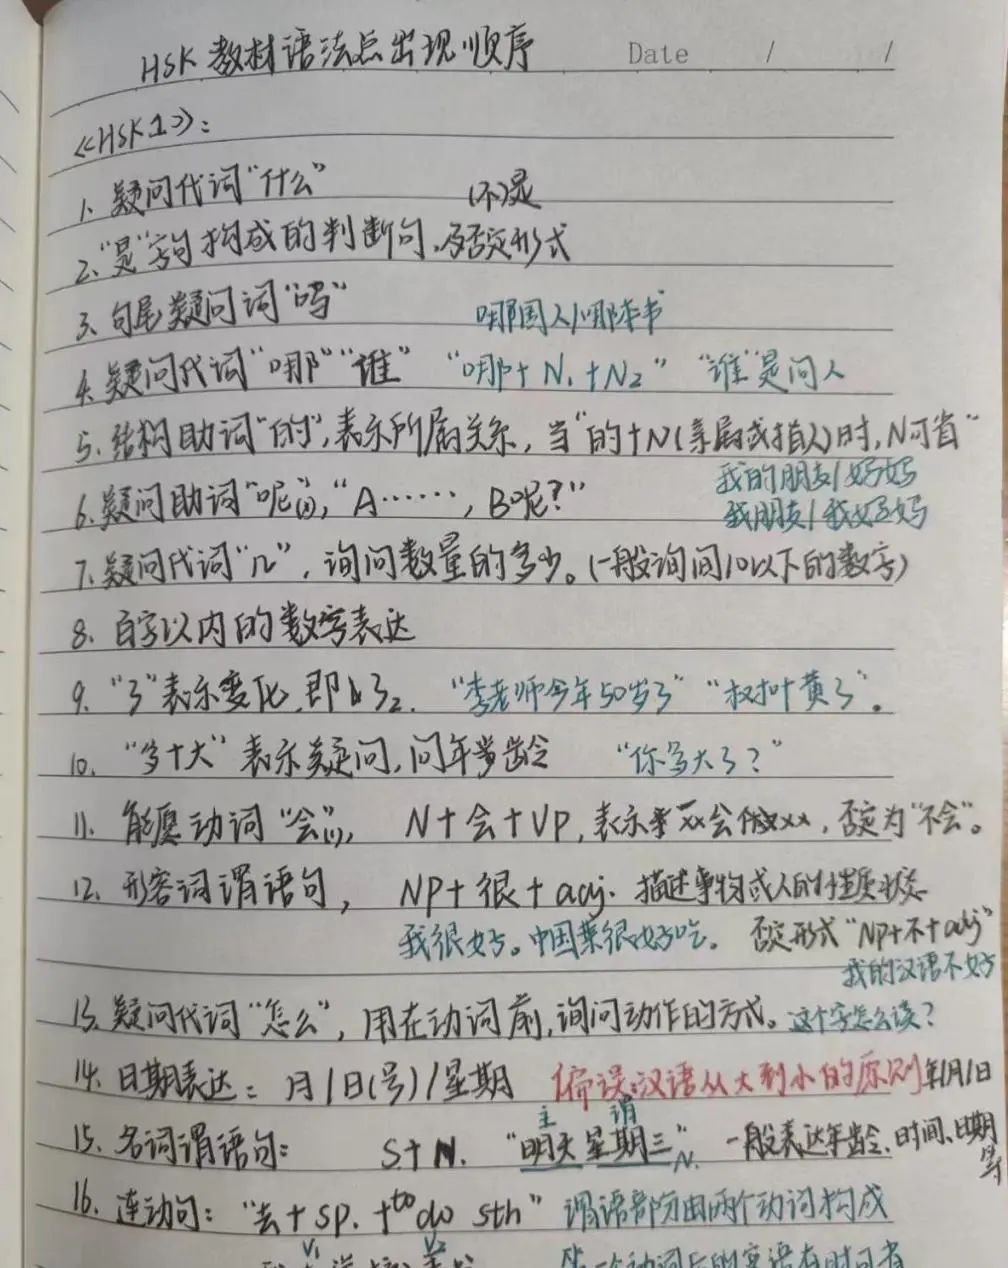 HSK 教材语法点出现顺序 Date / /
《HSK1》:
1、疑问代词"什么"
(不)是
2、"是"字句构成的判断句,及否定形式
3、句尾疑问词"吗"
哪国人/哪本书
4、疑问代词"哪""谁" "哪+N₁+N₂" "谁"是问人
5、结构助词"的",表示所属关系,当"的+N(亲属或指人)时,N可省"
我的朋友/妈妈
6、疑问助词"呢"(1),"A……,B呢?"
我朋友/我妈妈
7、疑问代词"几",询问数量的多少。(一般询问10以下的数字)
8、百字以内的数字表达
9、"了"表示变化,即了₂. "李老师今年50岁了" "树叶黄了"。
10、"多+大"表示疑问,问年龄 "你多大了?"
11、能愿动词"会"(1), N+会+VP,表示xx会做xx,否定为"不会"。
12、形容词谓语句, NP+很+adj. 描述事物或人的性质状态
我很好。中国菜很好吃. 否定形式"NP+不+adj"
我的汉语不好
13、疑问代词"怎么",用在动词前,询问动作的方式。这个字怎么读?
14、日期表达:月/日(号)/星期 偏误:汉语从大到小的原则 年/月/日
主 谓
15、名词谓语句: S+N. "明天星期三" N. 一般表达年龄、时间、日期等
16、连动句:"去+sp.+to do sth" 谓语部分由两个动词构成
V₁ V₂